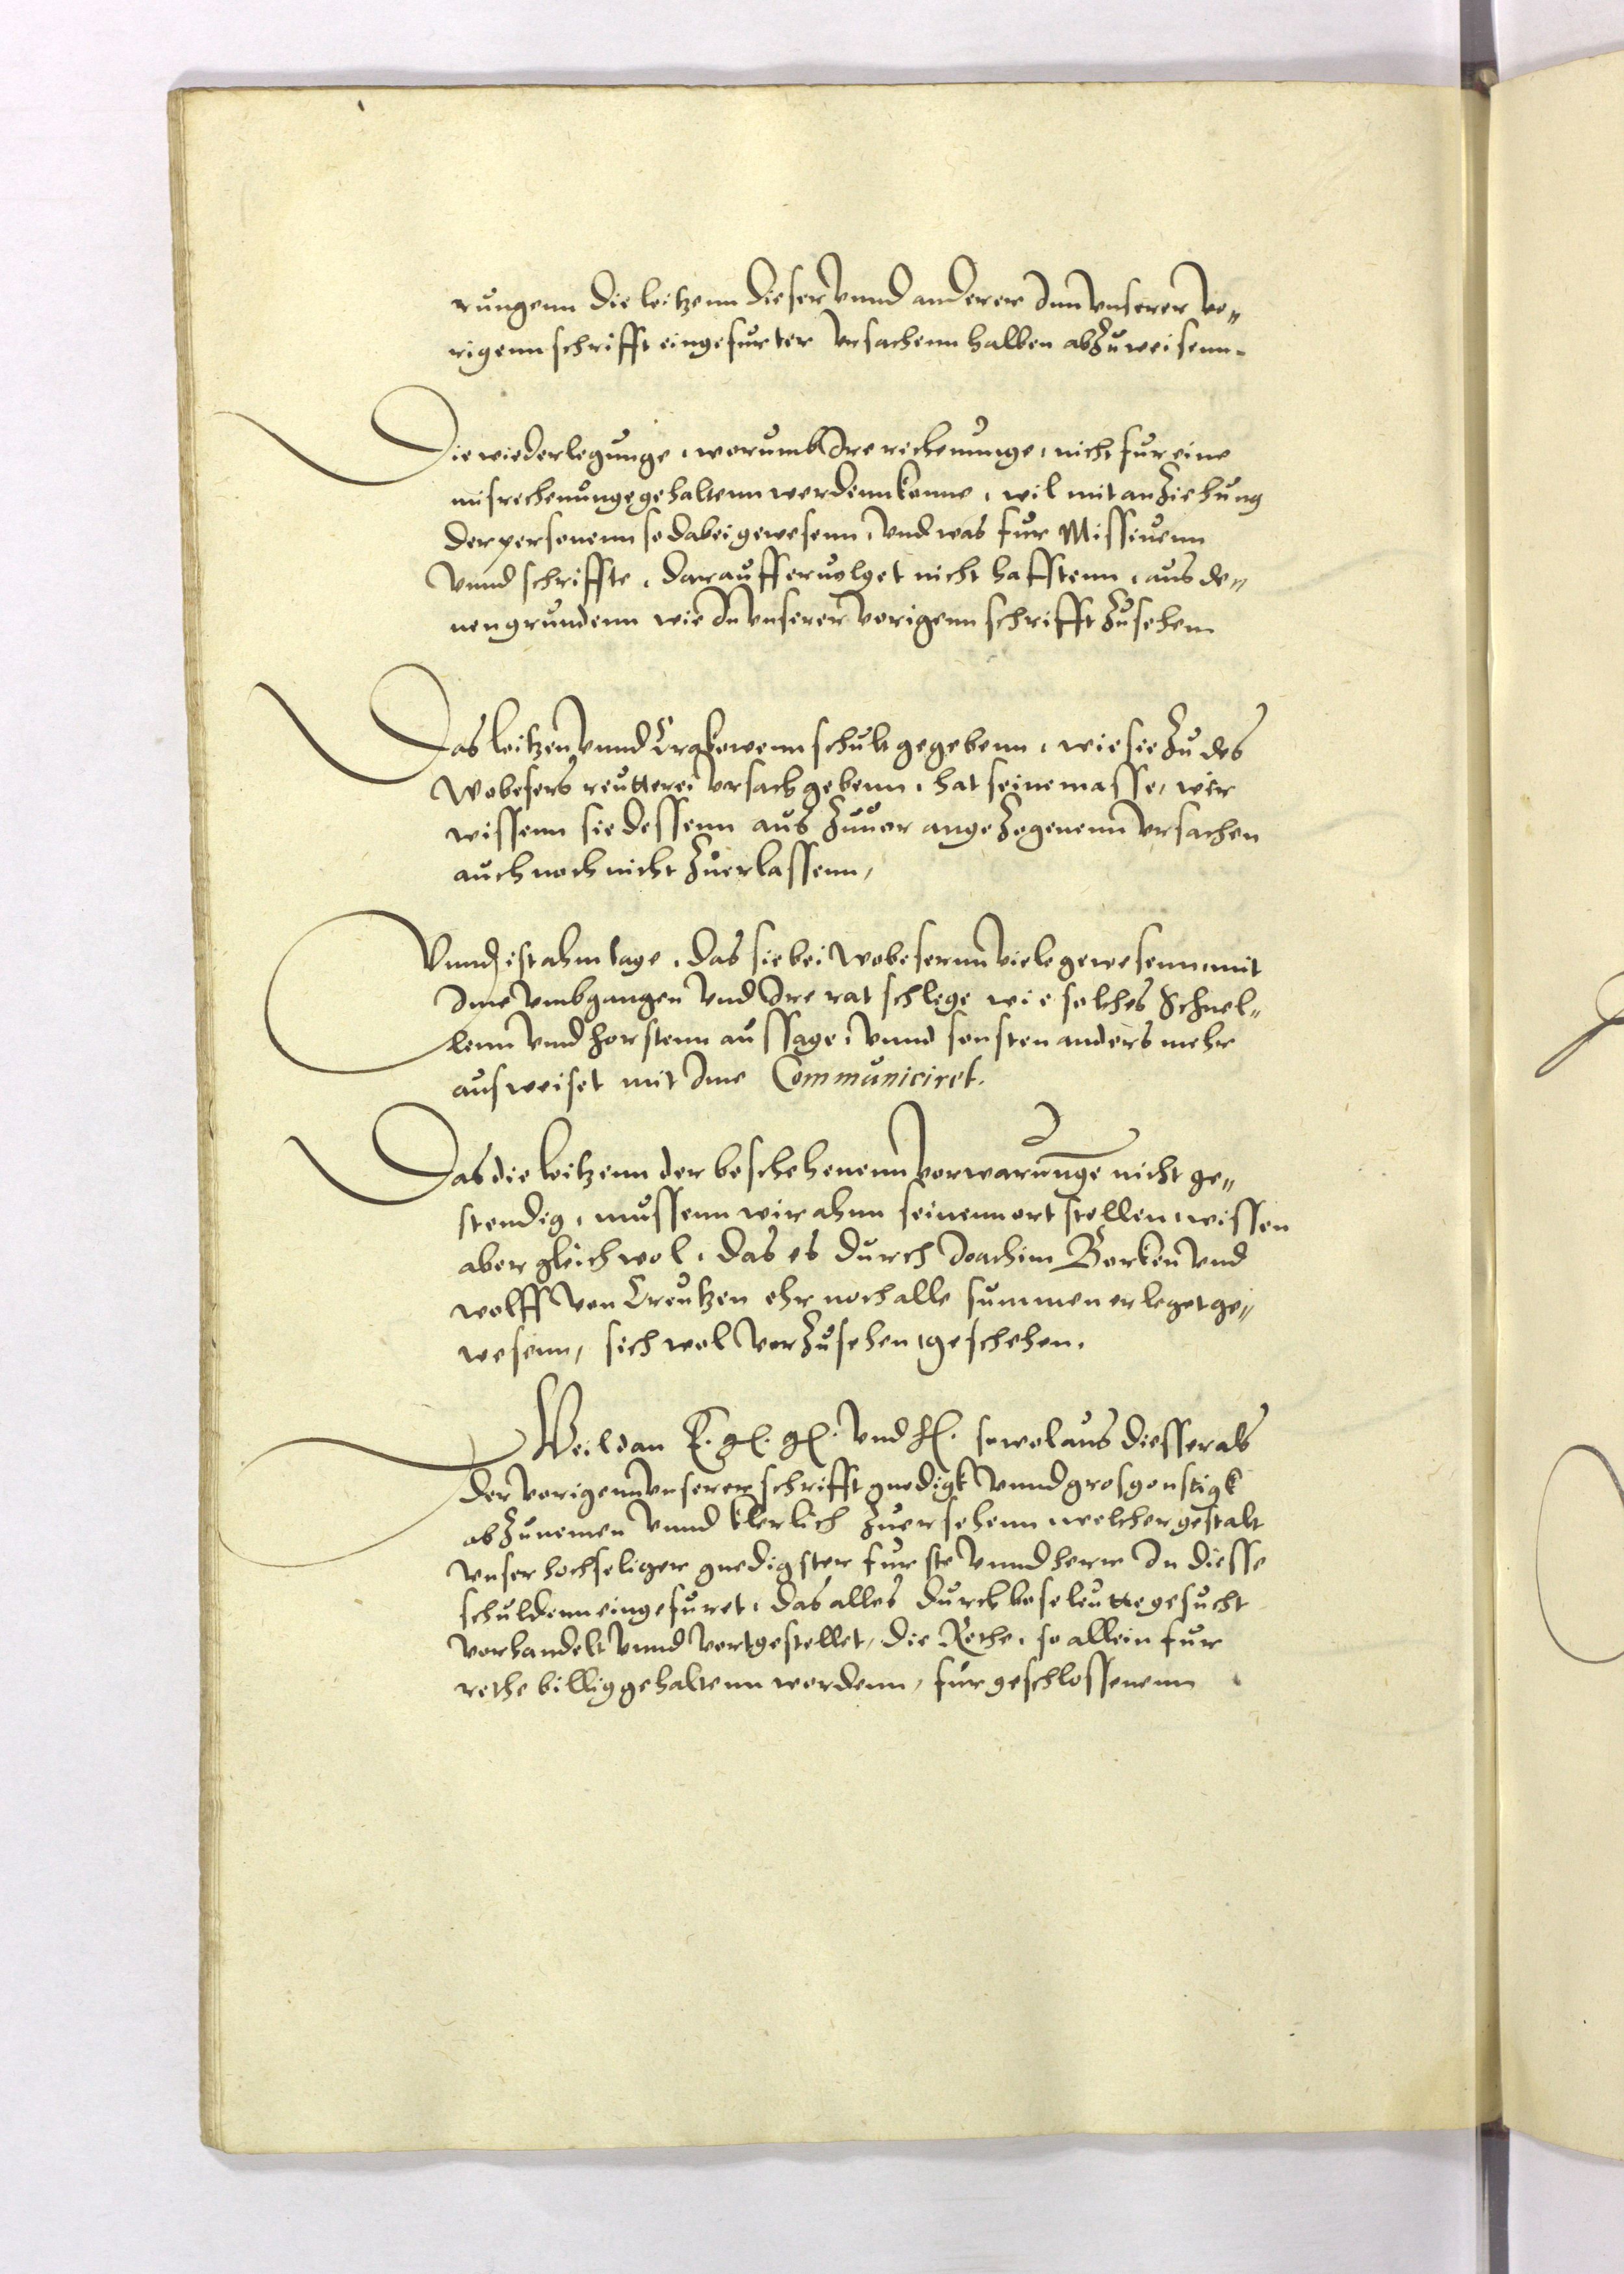 rungenn die leitzenn dieser vnnd anderer Inn vnserer vo„
rigenn schrifft eingefurter vrsachenn halben abzuweisenn.
Die wiederlegunge, worumb Ire rechenunge, nicht fur eine
misrechenunge gehaltenn werdenn konne, wil mit anziehung
der personenn so dabei gewesenn, vnd was fur Missiuenn
vnnd schriffte, darauff eruolget nicht hafftenn, aus de„
nen grundenn wie In vnserer vorigenn schrifft zusehen
Das leitzen vnnd Crakowenn schult gegebenn, wie sie zu des
Wobesers reutterei vrsach gebenn, hat seine masse, wir
wissenn sie dessenn aus zuuor angezogenenn vrsachen
auch noch nicht zuerlassenn,
Vnnd ist ahm tage, das sie bei Wobesernn viele gewesenn, mit
Ime vmbgangen vnd Ire ratschlege wie solches Schnel„
lenn vnnd horstenn aussage, vnnd sonsten anders mehr
ausweiset mit Ime Communiciret.
Das die leitzenn der beschehenenn vorwarunge nicht ge„
stendig, mussenn wir ahnn seinenn ort stellen, wissen
aber gleichwol, das es durch Joachim Borken vnd
wolff von Creutzen ehr noch alle summen erleget ge„
wesenn, sich wol vorzusehen, geschehen.
Weil dan E. gl. gl. vnd hl. sowol aus diesser als
der vorigenn vnserer schrifft gnedigk vnnd grosgonstigk
abzunemen vnnd klerlich zuersehenn, welcher gestalt
vnser hochseliger gnedigster furste vnnd herr In diesse
schuldenn eingefuret, das alles durch bose leutte gesucht
vorhandelt vnnd vortgestellet, die Rethe, so allein fur
rethe billig gehaltenn werdenn, furgeschlossenenn